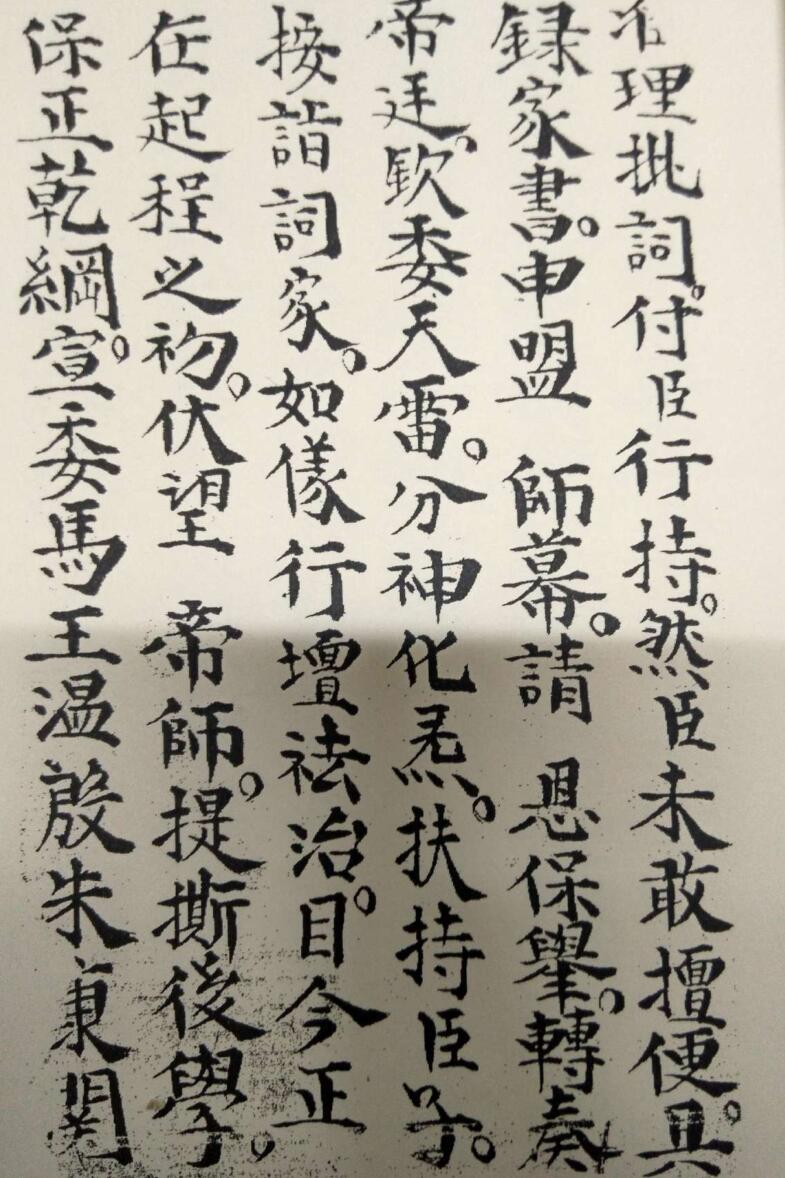 准理批詞。付臣行持。然臣未敢擅便。具
録家書。申盟 師幕。請 恩保舉。轉奏
帝廷。欽委天雷。分神化炁。扶持臣子。
按詣詞家。如儀行壇祛治。目今正
在起程之初。伏望 帝師。提撕後學。
保正乾綱。宣委馬王溫殷朱康関